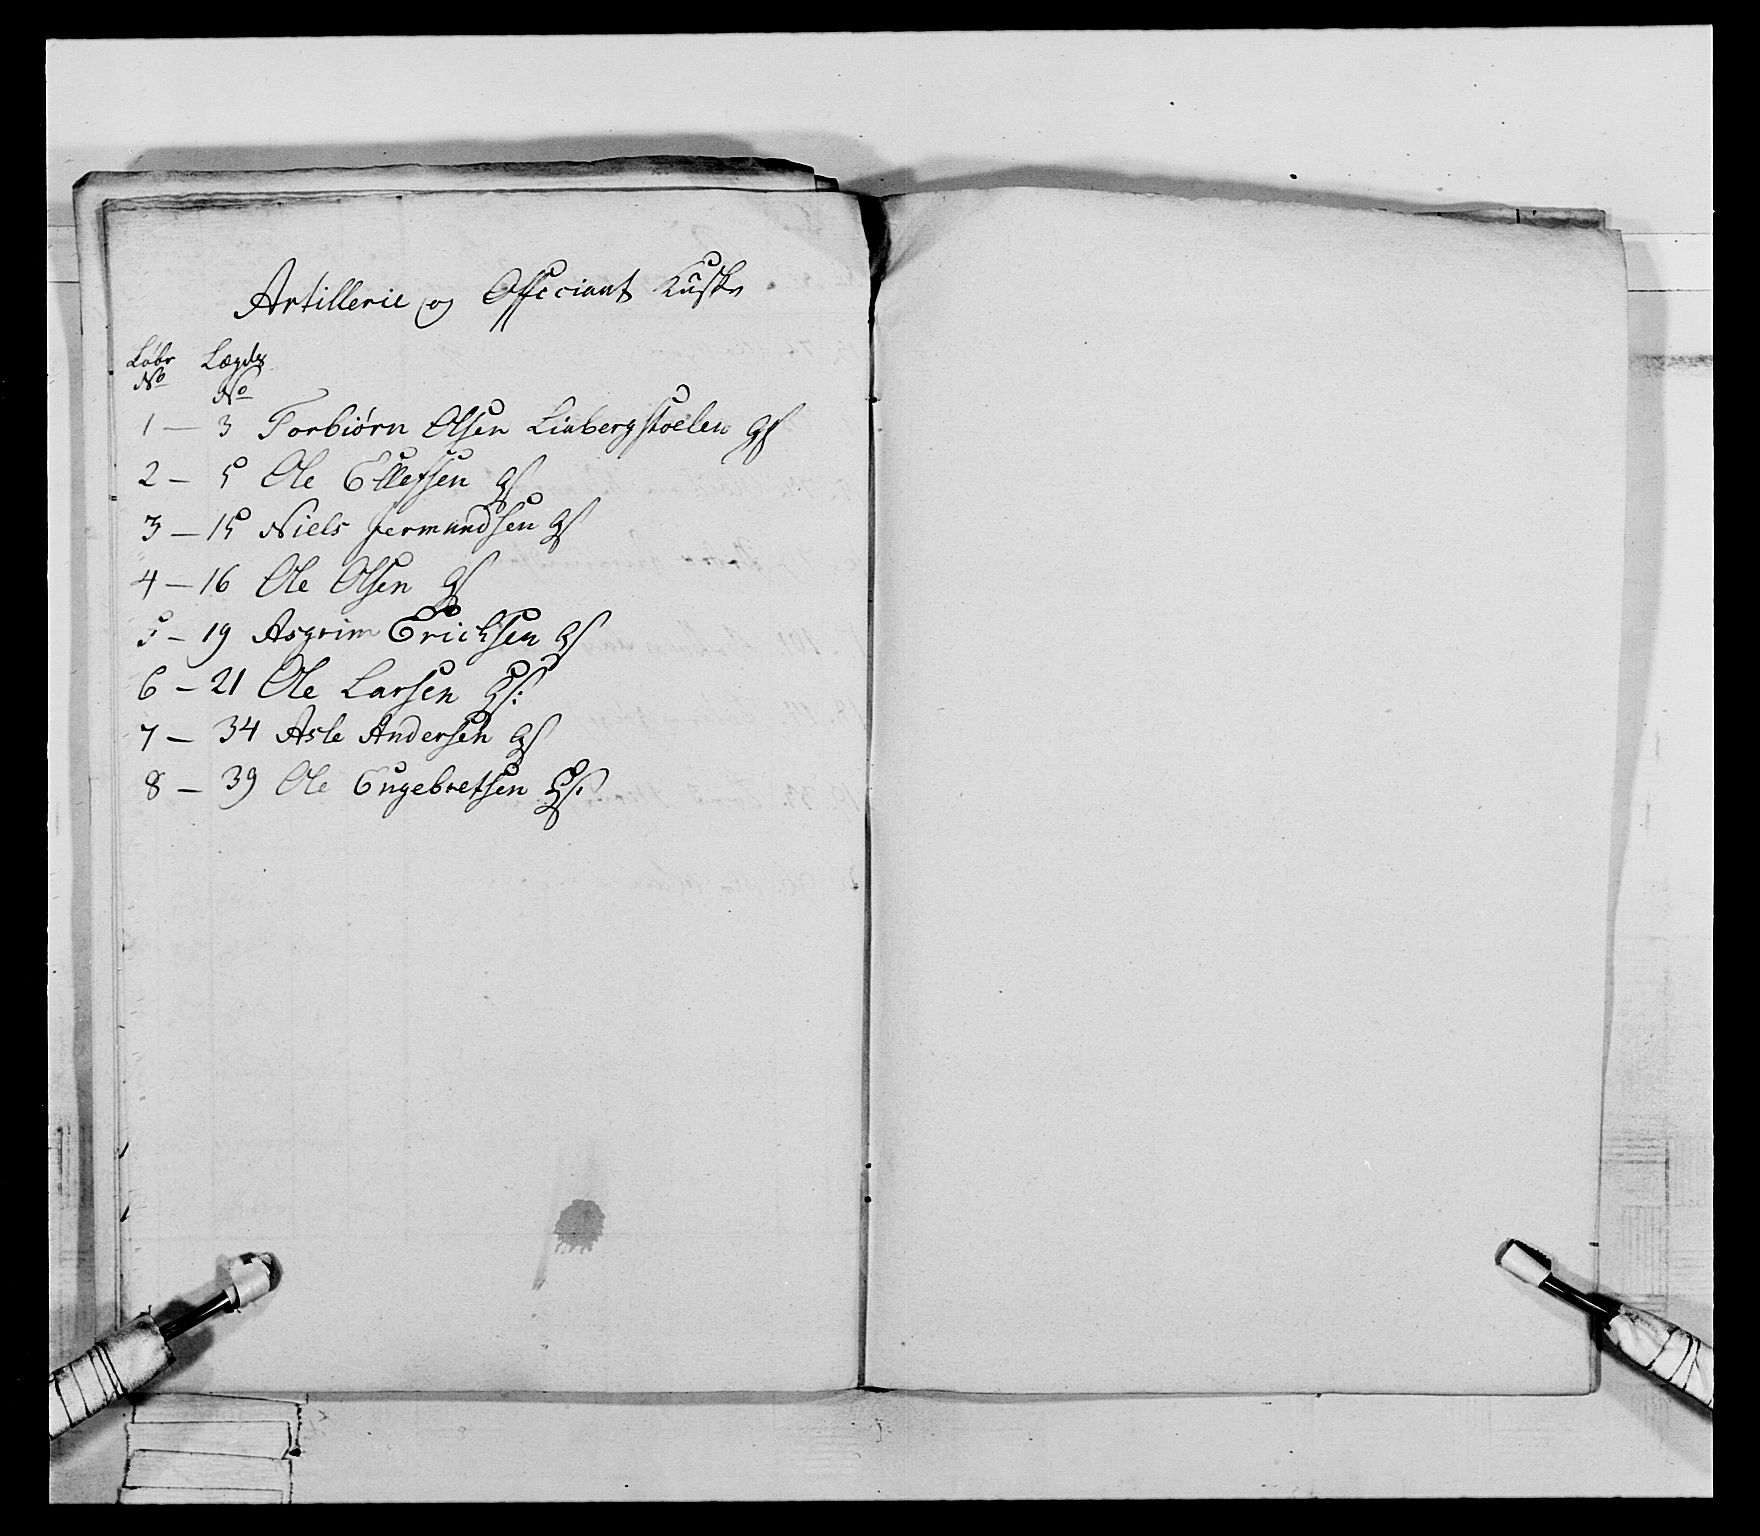 Artillerie og Officiant Kuske
Løbr Lægds
No No
1 — 3 Torbiørn Olsen Linbergstoelen gs
2 — 5 Ole Ellefsen gs
3 — 15 Niels Germundsen gs
4 — 16 Ole Olsen gs
5 — 19 Asgrim Erichsen gs
6 — 21 Ole Larsen gs:
7 — 34 Asle Andersen gs
8 — 39 Ole Engebretsen gs: